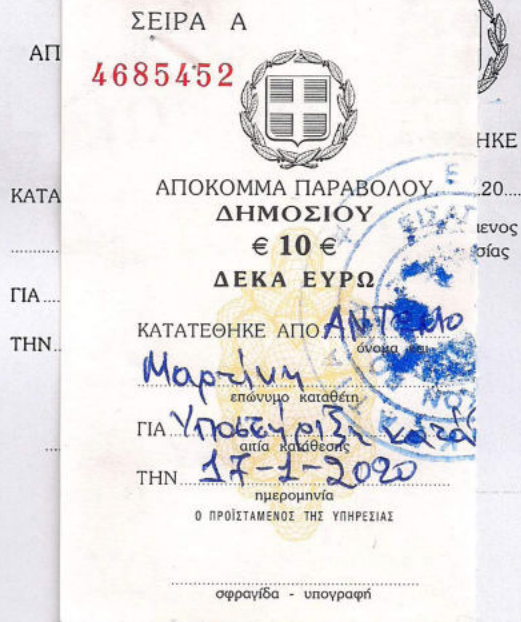 ΣΕΙΡΑ Α
4685452
ΑΠΟΚΟΜΜΑ ΠΑΡΑΒΟΛΟΥ
ΔΗΜΟΣΙΟΥ
€ 10 €
ΔΕΚΑ ΕΥΡΩ
ΚΑΤΑΤΕΘΗΚΕ ΑΠΟ ΑΝΤΩΝΙΟ
όνομα και
Μαρτίνη
επώνυμο καταθέτη
ΓΙΑ Υποστήριξη
αιτία κατάθεσης
ΤΗΝ 17-1-2020
ημερομηνία
Ο ΠΡΟΪΣΤΑΜΕΝΟΣ ΤΗΣ ΥΠΗΡΕΣΙΑΣ
σφραγίδα - υπογραφή
ΑΠ
ΚΑΤΑ
ΓΙΑ
ΤΗΝ
ΗΚΕ
20